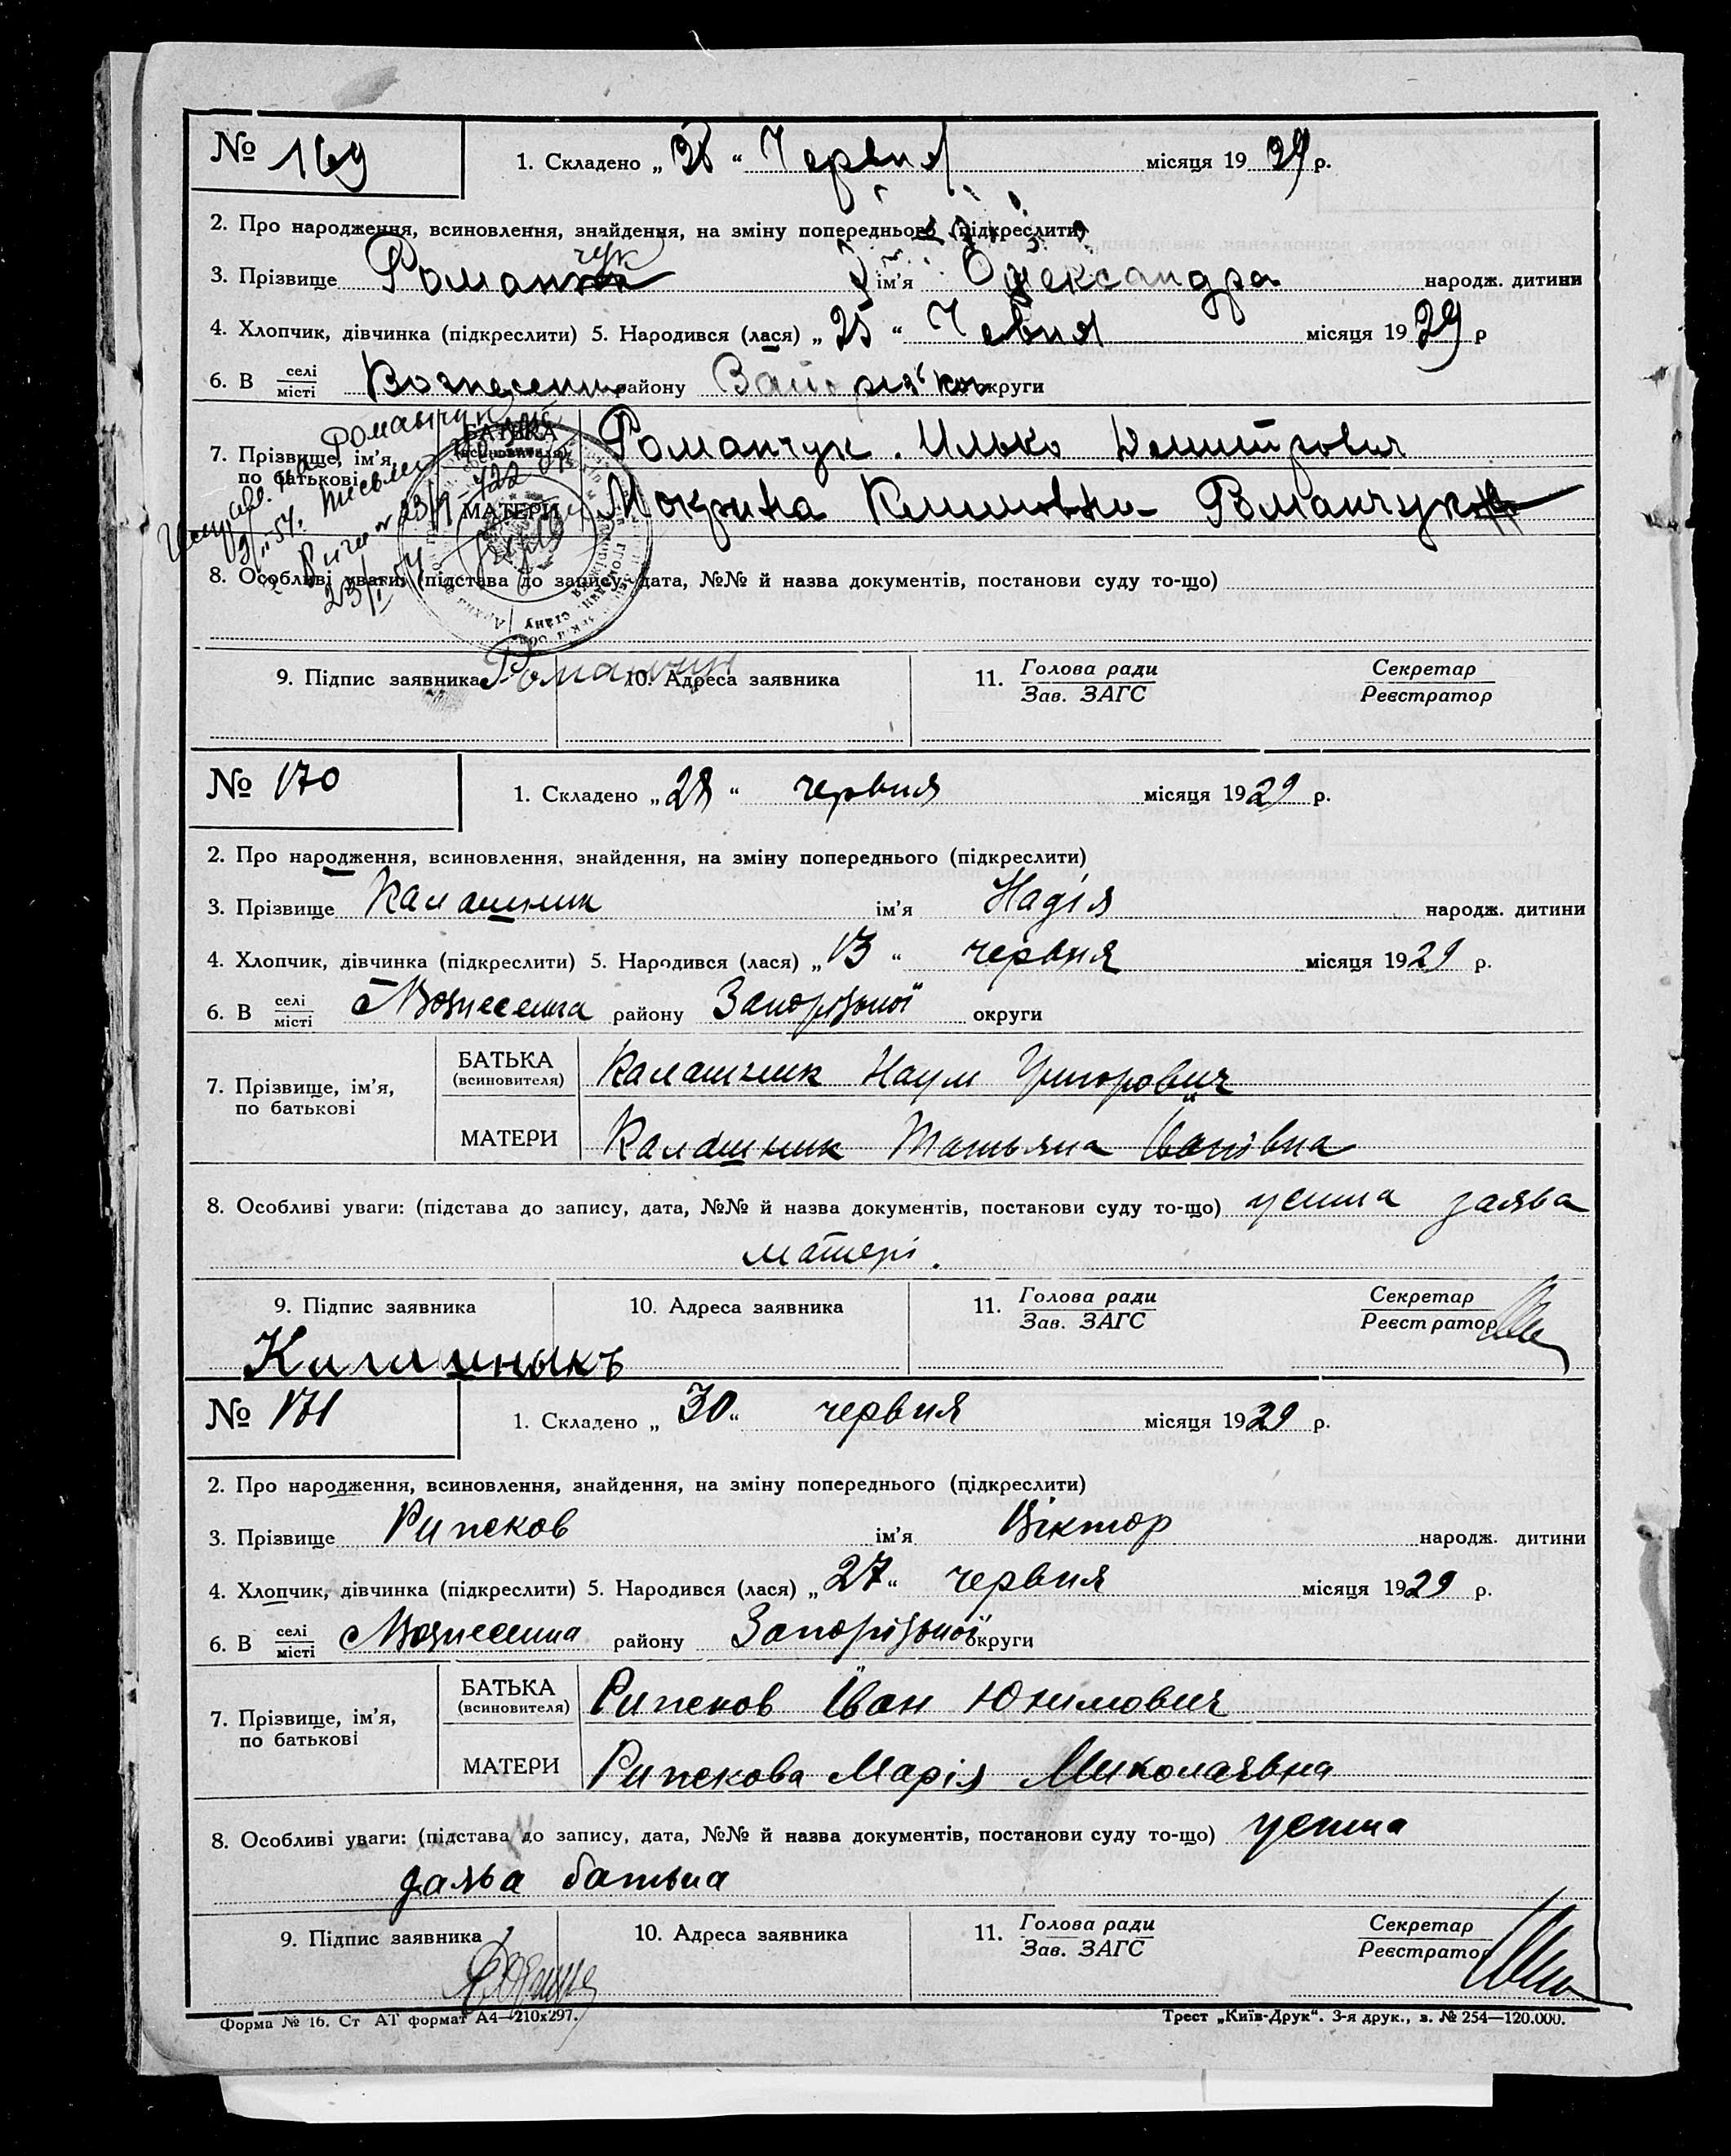 № 169
1. Складено „ 28 “ Червня місяця 19 29 р.
2. Про народження, всиновлення, знайдення, на зміну попереднього (підкреслити)
3. Прізвище Романчук ім'я Олександра народж. дитини
4. Хлопчик, дівчинка (підкреслити) 5. Народився (лася) „ 25 “ Чевня місяця 19 29 р
6. В селі/місті Вознесенка району округи
7. Прізвище, ім'я, по батькові
БАТЬКА (всиновителя) Романчук Илько Демитрович
МАТЕРИ Мокрина Романчук
8. Особливі уваги: (підстава до запису, дата, №№ й назва документів, постанови суду то-що)
9. Підпис заявника 10. Адреса заявника 11. Голова ради/Зав. ЗАГС Секретар/Реєстратор
№ 170
1. Складено „ 28 “ червня місяця 19 29 р.
2. Про народження, всиновлення, знайдення, на зміну попереднього (підкреслити)
3. Прізвище Калашник ім'я Надія народж. дитини
4. Хлопчик, дівчинка (підкреслити) 5. Народився (лася) „ 13 “ червня місяця 19 29 р.
6. В селі/місті Вознесенка району Запорізької округи
7. Прізвище, ім'я, по батькові
БАТЬКА (всиновителя) Калашник Наум Григорович
МАТЕРИ Калашник Татьяна Іванівна
8. Особливі уваги: (підстава до запису, дата, №№ й назва документів, постанови суду то-що) усна заява
матері.
9. Підпис заявника 10. Адреса заявника 11. Голова ради/Зав. ЗАГС Секретар/Реєстратор
№ 171
1. Складено „ 30 “ червня місяця 19 29 р.
2. Про народження, всиновлення, знайдення, на зміну попереднього (підкреслити)
3. Прізвище ім'я Віктор народж. дитини
4. Хлопчик, дівчинка (підкреслити) 5. Народився (лася) „ 27 “ червня місяця 19 29 р.
6. В селі/місті Вознесенка району Запорізької округи
7. Прізвище, ім'я, по батькові
БАТЬКА (всиновителя) Іван Юхимович
МАТЕРИ Марія Миколаївна
8. Особливі уваги: (підстава до запису, дата, №№ й назва документів, постанови суду то-що) усна
заява батька
9. Підпис заявника 10. Адреса заявника 11. Голова ради/Зав. ЗАГС Секретар/Реєстратор
Форма № 16. Ст АТ формат А4—210х297. Трест „Київ-Друк“. 3-я друк., з. № 254—120.000.